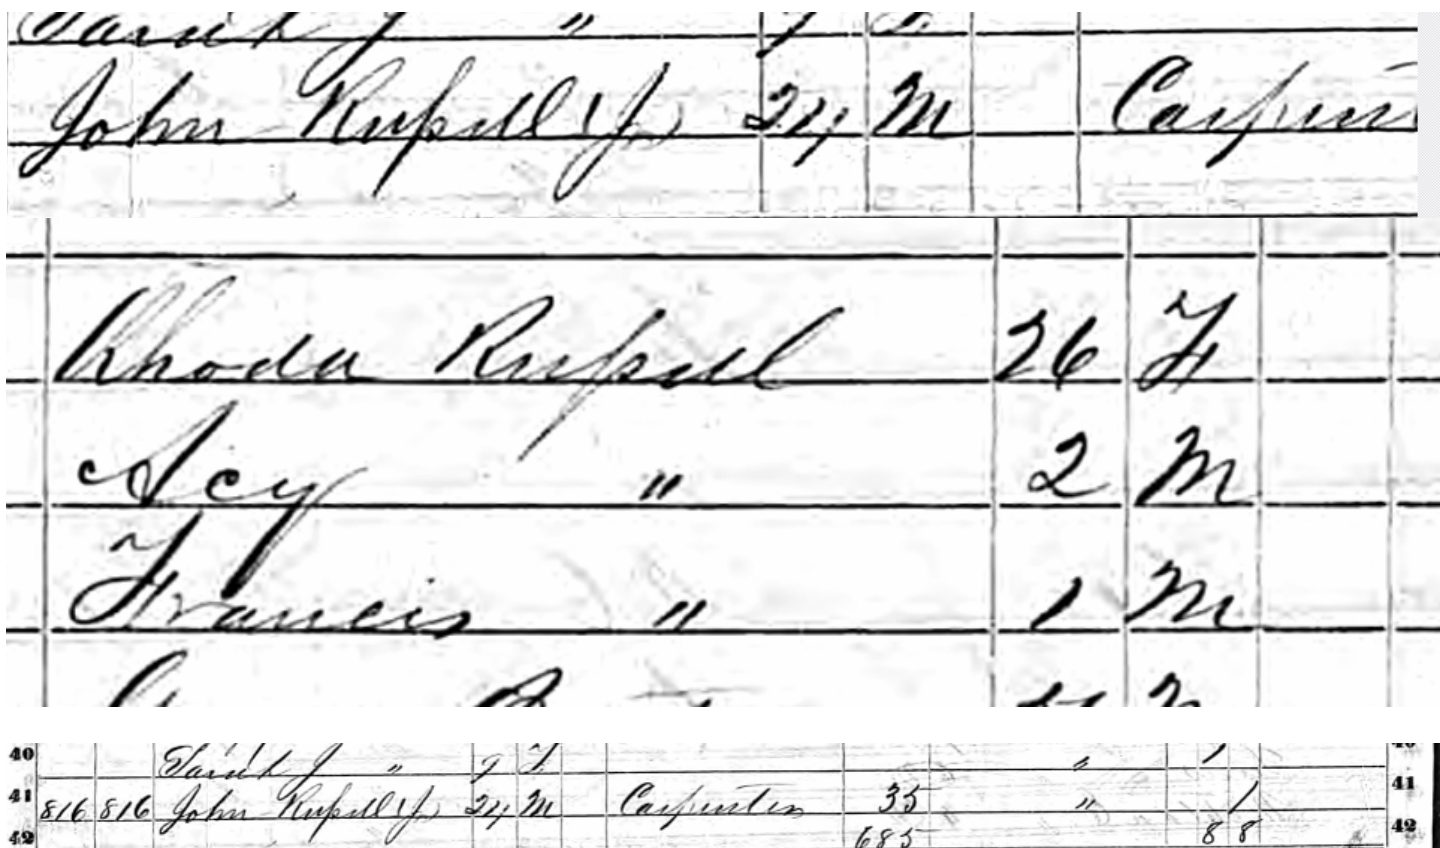 Sarah J " 9 F
John Russell (Jr) 24 M Carpent
Rhoda Russell 26 F
Acy " 2 M
Francis " 1 M
40 Sarah J " 9 F " 1
41 816 816 John Russell (Jr) 24 M Carpenter 35 " 1 41
42 685 8 8 42